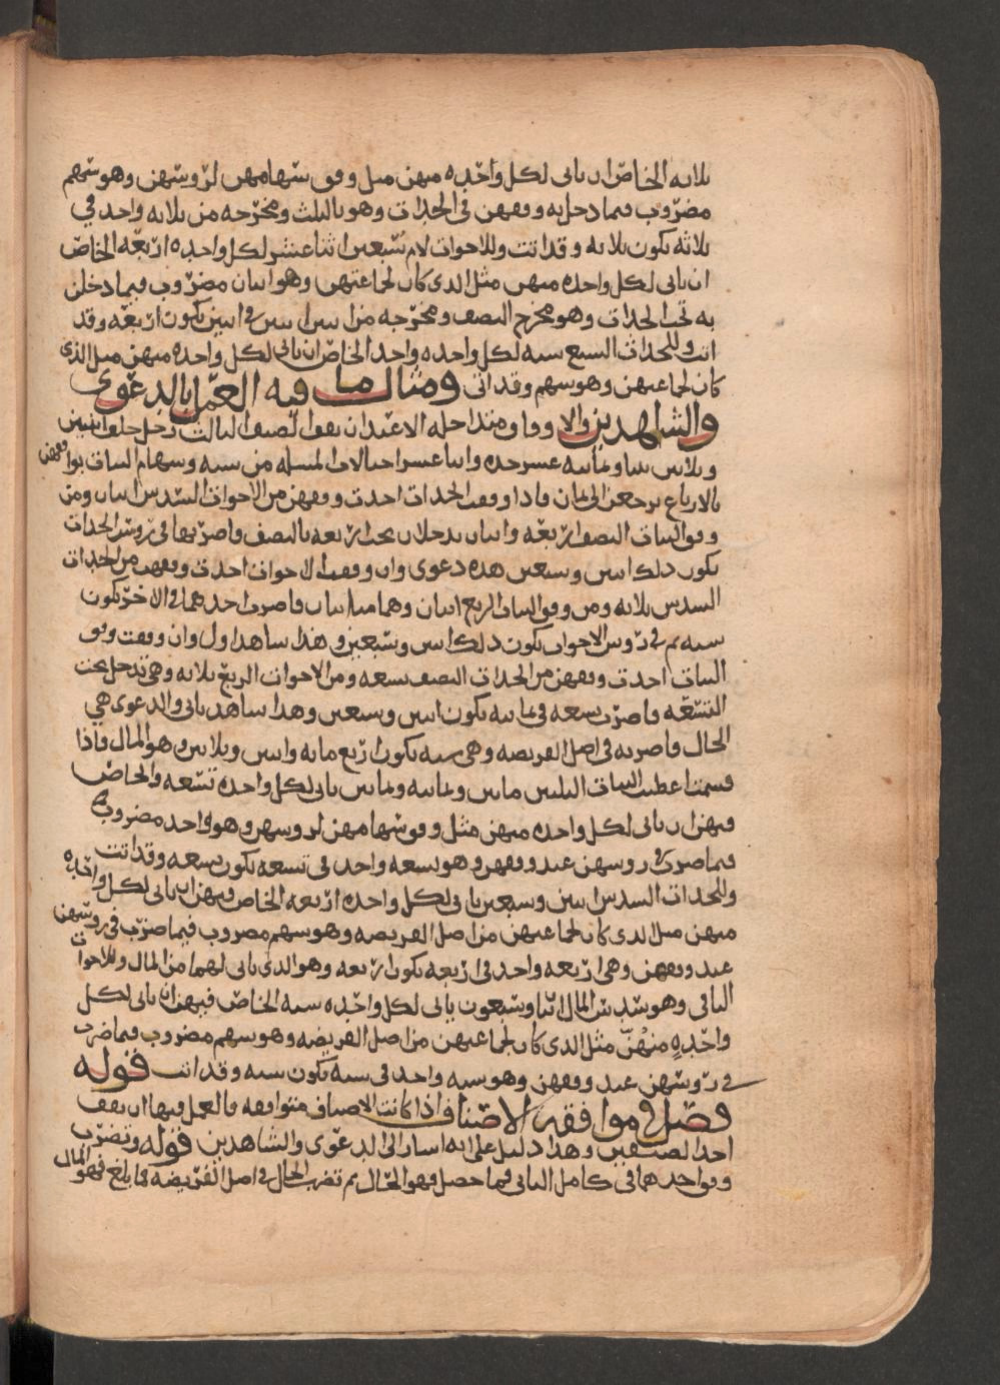 ثلاثه الخاص ان ياتى لكل واحده منهن مثل وفق سهامهن لروسهن وهو سهم
مضروب فيما دخل به ووفقهن فى الجدات وهو بالثلث ومخرجه من ثلاثه واحد في
ثلاثه يكون ثلاثه وقد اتت وللاخوات لام سبعين اثنا عشر لكل واحده اربعه الخاص
ان ياتى لكل واحده منهن مثل الدى كان لجماعتهن وهو اثنان مضروب فيما دخلن
به تحت الجدات وهو مخرج النصف ومخرجه من اثنين اثنين فى اثنين يكون اربعه وقد
اتت وللجدات السبع سته لكل واحده واحد الخاص ان ياتى لكل واحده منهن مثل الذى
كان لجماعتهن وهو سهم وقد اتى ومثال ما فيه العمل بالدعوى
والشاهدين والا وفاق رجل خلف اثنتين
وثلاثين بنتا وثمانيه عشر جده واثنا عشر اختا لاب المسله من سته وسهام البنات توافقهن
بالارباع ترجعن الى ثمان فاذا وقفت الجدات اخذت ووفقهن من الاخوات السدس اثنان ومن
وفق البنات النصف اربعه واثنان يدخلان تحت اربعه بالنصف فاضربها فى روس الجدات
يكون دلك اثنين وسبعين هده دعوى وان وقفت الاخوات اخذت ووفقهن من الجدات
السدس ثلاثه ومن وفق البنات الربع اثنان وهما فاضرب احدهما فى الاخر يكون
سته ثم فى روس الاخوات يكون دلك اثنين وسبعين وهذا شاهد اول وان وقفت وفق
البنات اخدت ووفقهن من الجدات النصف تسعه ومن الاخوات الربع ثلاثه وهى تدخل تحت
التسعه فاضرب تسعه فى ثمانيه يكون اثنين وسبعين وهدا شاهد ثانى والدعوى هي
الحال فاضربه فى اصل الفريضه وهى سته يكون اربع مايه واثنين وثلاثين وهو المال فاذا
قسمت اعطيت البنات الثلثين مايتين وثمانيه وثمانين ياتى لكل واحده تسعه والخاص
فيهن ان ياتى لكل واحده منهن مثل وفق سهامهن لروسهن وهو واحد مضروب
فيما ضرب فى روسهن عند ووفقهن وهو تسعه واحد فى تسعه يكون تسعه وقد اتت
وللجدات السدس اثنين وسبعين ياتى لكل واحده اربعه الخاص فيهن ان ياتى لكل واحده
منهن مثل الدى كان لجماعتهن من اصل الفريضه وهو سهم مضروب فيما ضرب فى روسهن
عند ووفقهن وهى اربعه واحد فى اربعه يكون اربعه وهو الدى ياتى لهما من المال وللاخوات
الباقى وهو سدس المال اثنا وسبعون ياتى لكل واحده سته الخاص فيهن ان ياتى لكل
واحده منهن مثل الدى كان لجماعتهن من اصل الفريضه وهو سهم مضروب فيما ضرب
فى روسهن عند ووفقهن وهو سته واحد فى سته يكون سته وقد اتت قوله
فصل فى موافقه الاصناف اذا كانت الاصناف متوافقه فالعمل فيها ان تقف
احد الصنفين وهدا دليل على انه اشار الى الدعوى والشاهدين قوله وتضرب
وفق احدهما فى كامل الثانى فما حصل فهو الحال ثم تضرب الحال فى اصل الفريضه فما بلغ فهو المال